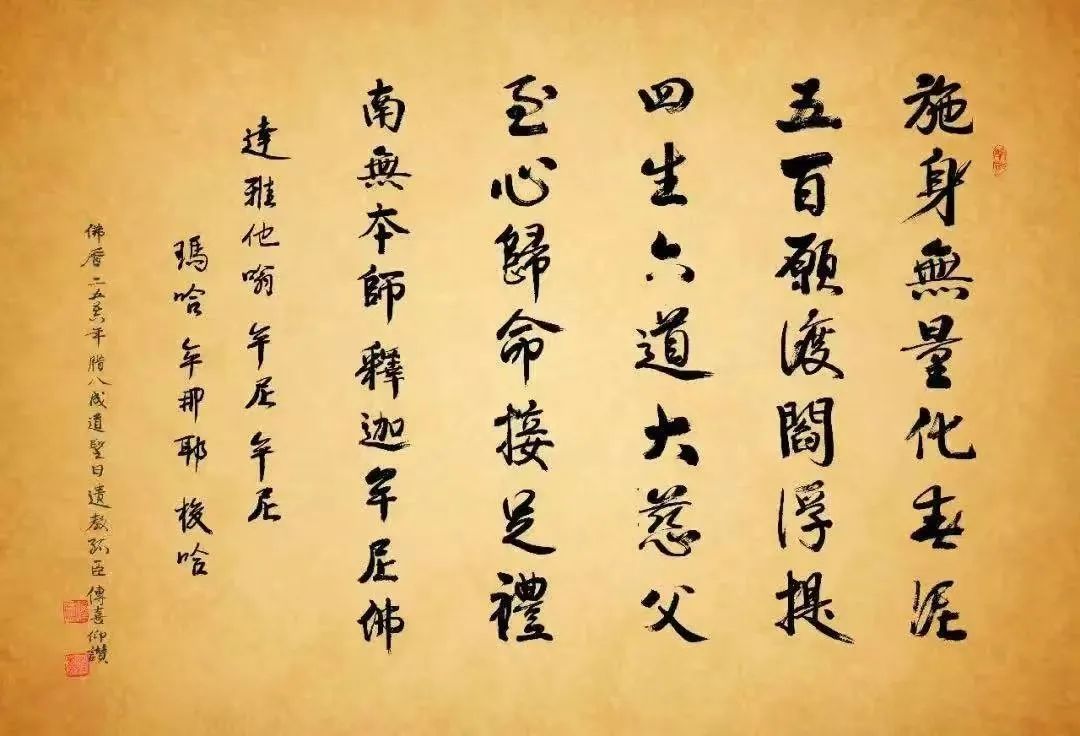 施身無量化春泥
五百願渡閻浮提
四生六道大慈父
至心歸命接足禮
南無本師 釋迦牟尼佛
達雅他嗡 牟尼牟尼
瑪哈 牟那耶 梭哈
佛曆二五五六年 腊八成道聖日遺教孤臣傳喜仰讚